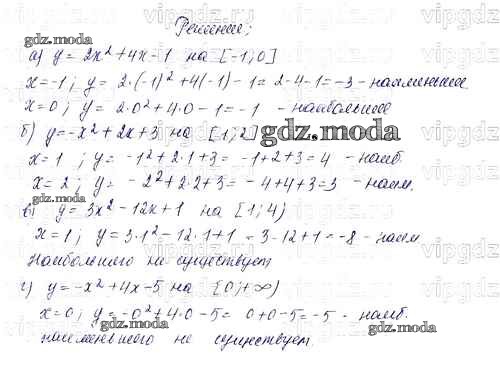 Решение;
а) y = 2x² + 4x - 1 на [-1; 0]
x = -1; y = 2·(-1)² + 4(-1) - 1 = 2 - 4 - 1 = -3 - наименьшее
x = 0; y = 2·0² + 4·0 - 1 = -1 - наибольшее
б) y = -x² + 2x + 3 на [1; 2]
x = 1; y = -1² + 2·1 + 3 = -1 + 2 + 3 = 4 - наиб.
x = 2; y = -2² + 2·2 + 3 = -4 + 4 + 3 = 3 - наим.
в) y = 3x² - 12x + 1 на [1; 4)
x = 1; y = 3·1² - 12·1 + 1 = 3 - 12 + 1 = -8 - наим
Наибольшего не существует
г) y = -x² + 4x - 5 на [0; +∞)
x = 0; y = -0² + 4·0 - 5 = 0 + 0 - 5 = -5 - наиб.
наименьшего не существует.
gdz.moda
gdz.moda
gdz.moda
gdz.moda
gdz.moda
gdz.moda
vipgdz
vipgdz
vipgdz